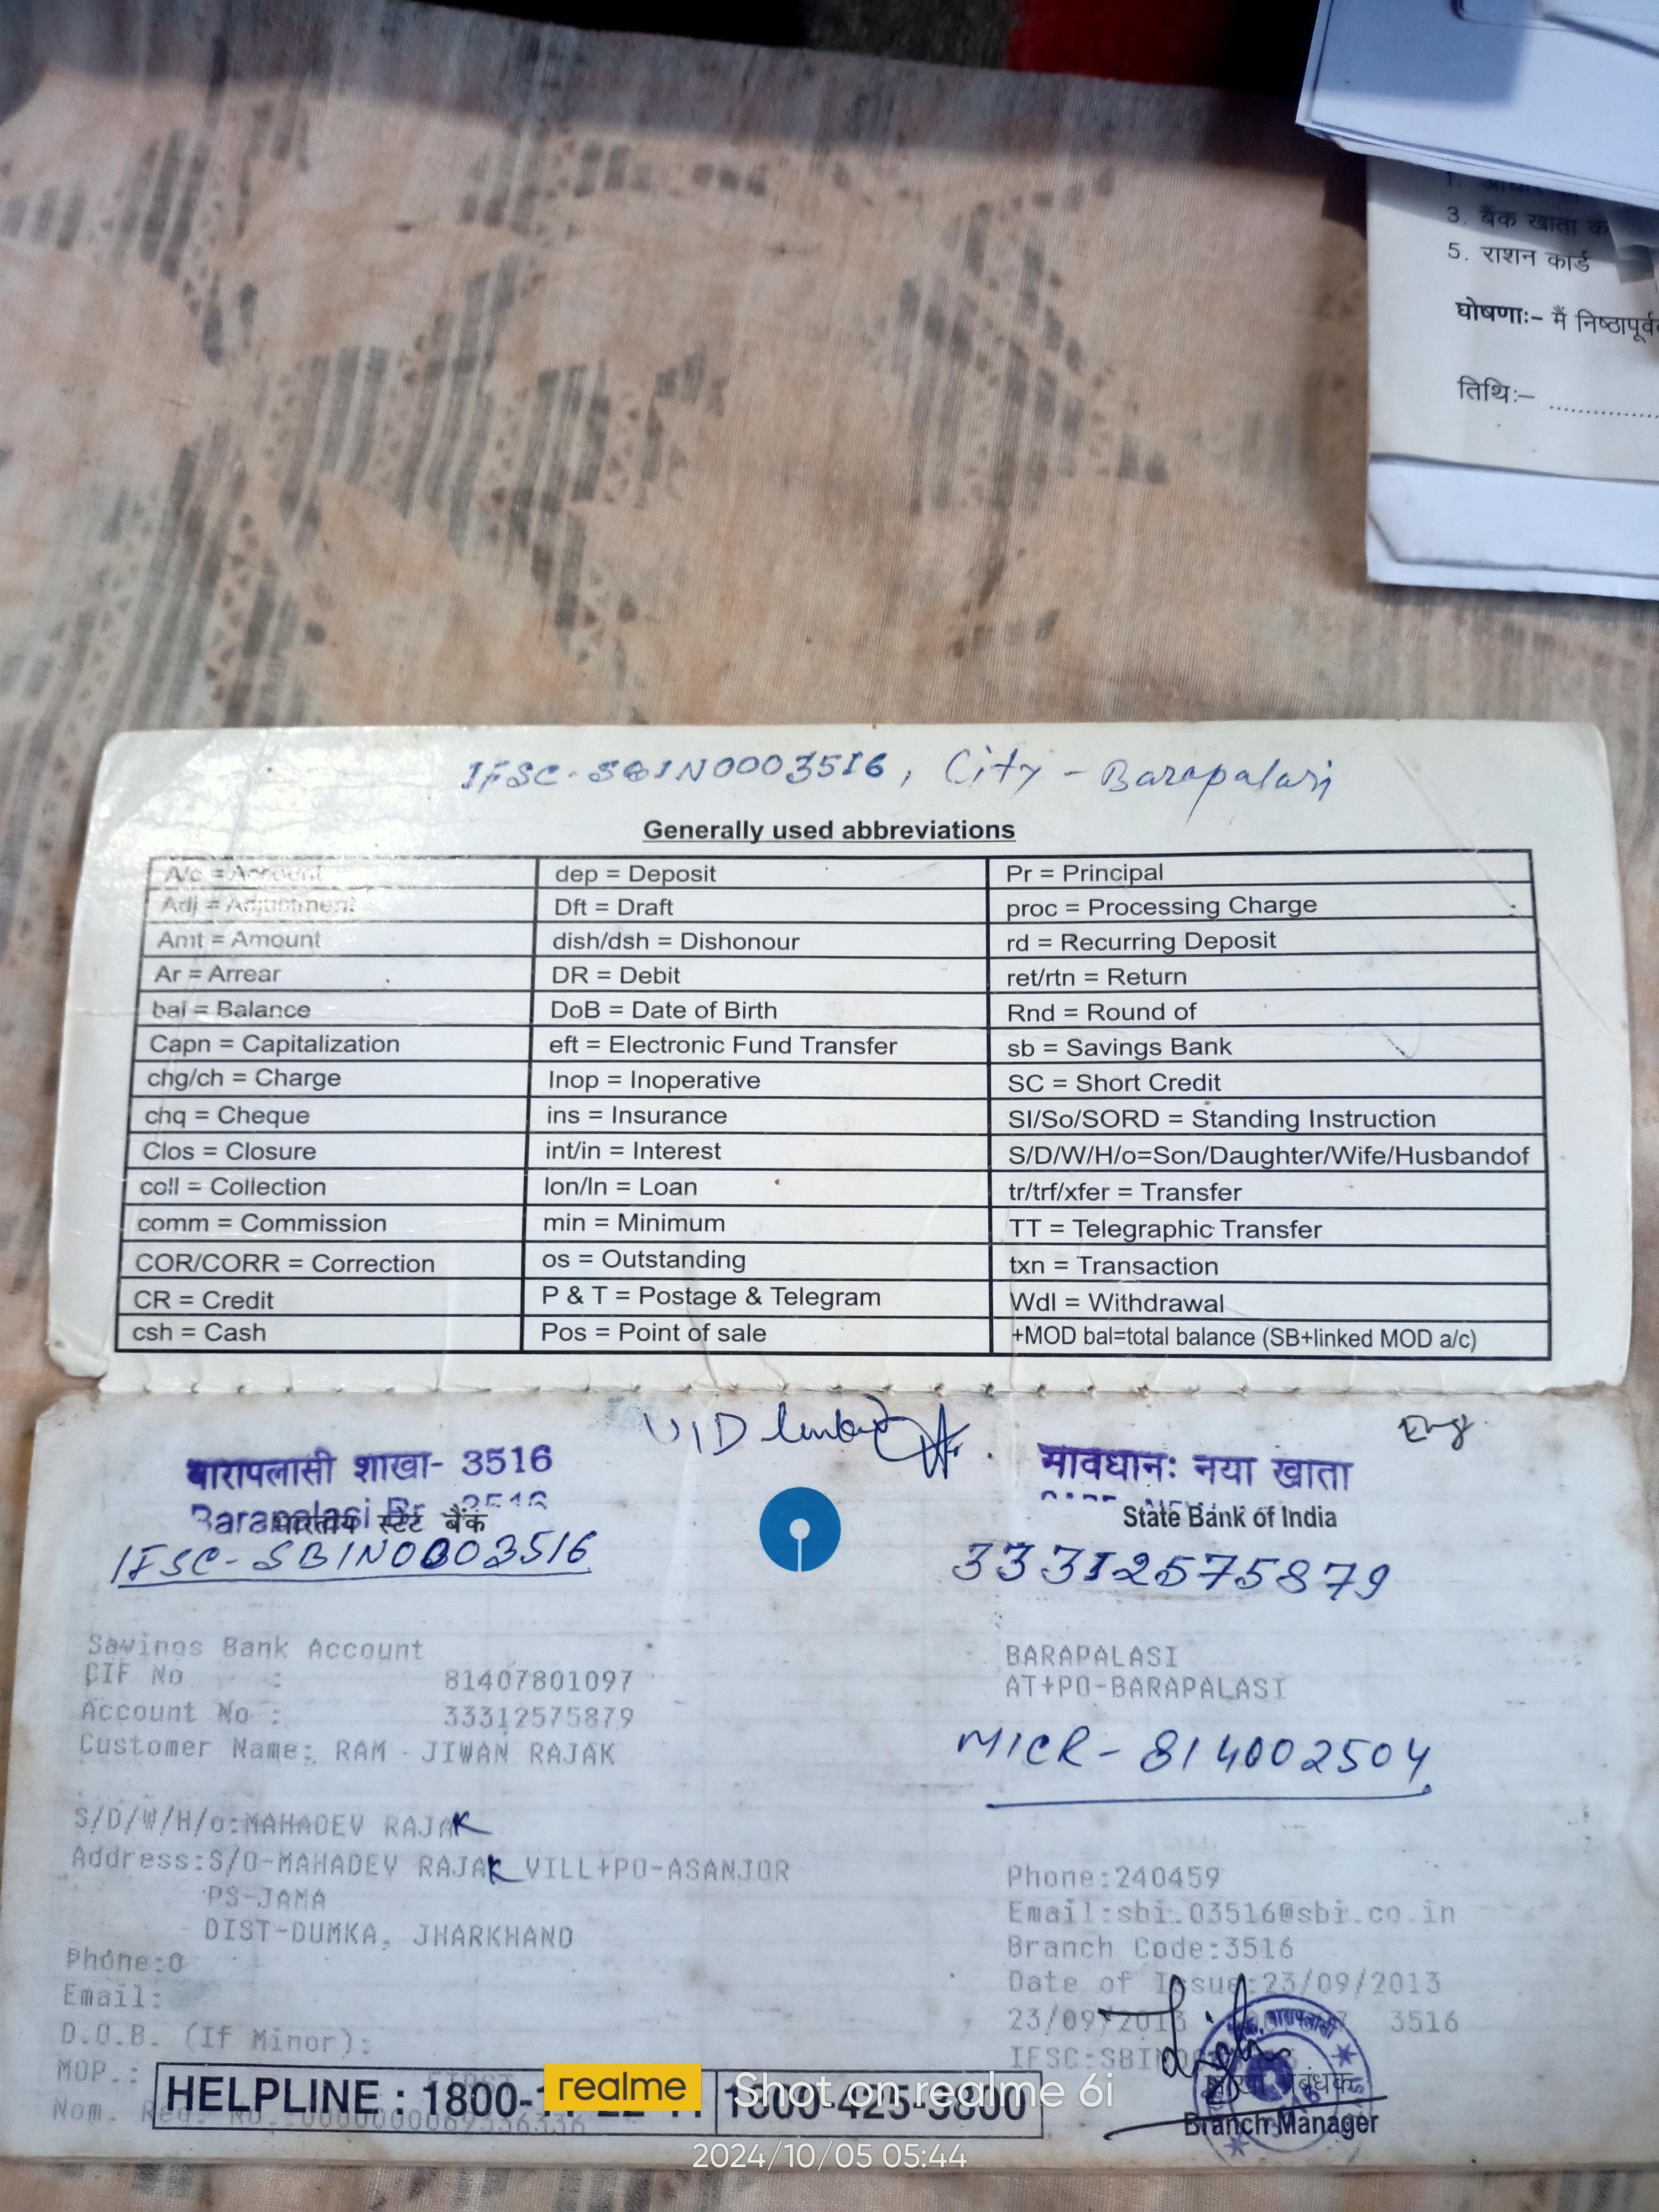 1. आधार
3. बैंक खाता क
5. राशन कार्ड
घोषणाः- मैं निष्ठापूर्व
तिथिः- ....................
IFSC-SBIN0003516, City - Barapalasi
Generally used abbreviations
A/c = Account dep = Deposit Pr = Principal
Adj = Adjustment Dft = Draft proc = Processing Charge
Amt = Amount dish/dsh = Dishonour rd = Recurring Deposit
Ar = Arrear DR = Debit ret/rtn = Return
bal = Balance DoB = Date of Birth Rnd = Round of
Capn = Capitalization eft = Electronic Fund Transfer sb = Savings Bank
chg/ch = Charge Inop = Inoperative SC = Short Credit
chq = Cheque ins = Insurance SI/So/SORD = Standing Instruction
Clos = Closure int/in = Interest S/D/W/H/o=Son/Daughter/Wife/Husbandof
coll = Collection lon/ln = Loan tr/trf/xfer = Transfer
comm = Commission min = Minimum TT = Telegraphic Transfer
COR/CORR = Correction os = Outstanding txn = Transaction
CR = Credit P & T = Postage & Telegram Wdl = Withdrawal
csh = Cash Pos = Point of sale +MOD bal=total balance (SB+linked MOD a/c)
UID linked
Eng.
बारापलासी शाखा- 3516
सावधानः नया खाता
Barapalasi Br. 3516
भारतीय स्टेट बैंक
State Bank of India
IFSC-SBIN0003516
33312575879
Savings Bank Account
BARAPALASI
CIF No : 81407801097
AT+PO-BARAPALASI
Account No : 33312575879
Customer Name: RAM JIWAN RAJAK
MICR- 814002504
S/D/W/H/o:MAHADEV RAJAK
Address:S/O-MAHADEV RAJAK VILL+PO-ASANJOR
Phone:240459
PS-JAMA
Email:sbi.03516@sbi.co.in
DIST-DUMKA, JHARKHAND
Branch Code:3516
Phone:0
Date of Issue:23/09/2013
Email:
23/09/2013 3516
D.O.B. (If Minor):
IFSC:SBIN
MOP.:
HELPLINE : 1800- 1800-425-3800
Nom. Reg. No.:
शाखा प्रबंधक
Branch Manager
realme Shot on realme 6i
2024/10/05 05:44